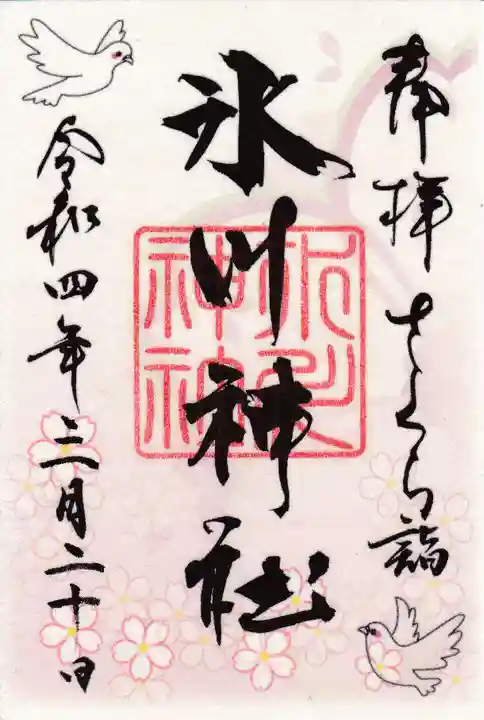 奉拝 さくら詣
氷川神社
令和四年三月二十日